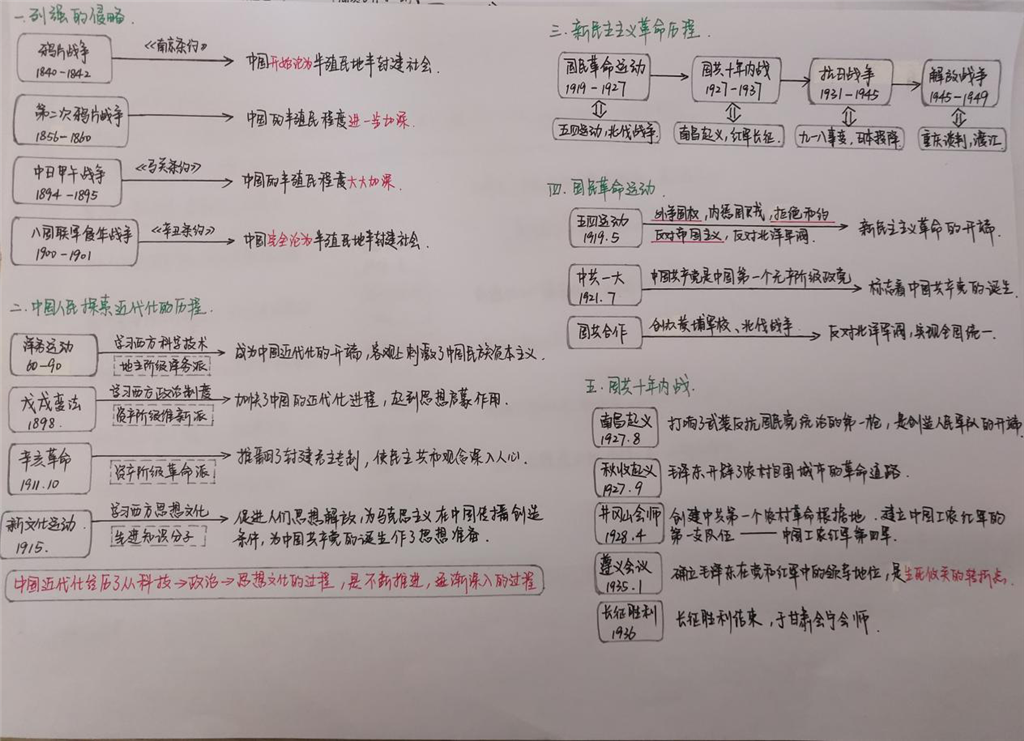 一.列强的侵略.
鸦片战争
1840-1842
《南京条约》
中国开始沦为半殖民地半封建社会.
第二次鸦片战争
1856-1860
中国的半殖民程度进一步加深.
中日甲午战争
1894-1895
《马关条约》
中国的半殖民程度大大加深.
八国联军侵华战争
1900-1901
《辛丑条约》
中国完全沦为半殖民地半封建社会.
二.中国人民探索近代化的历程.
洋务运动
60-90
学习西方科学技术
地主阶级洋务派
成为中国近代化的开端,客观上刺激了中国民族资本主义.
戊戌变法
1898.
学习西方政治制度
资产阶级维新派
加快了中国的近代化进程,起到思想启蒙作用.
辛亥革命
1911.10
资产阶级革命派
推翻了封建君主专制,使民主共和观念深入人心.
新文化运动
1915.
学习西方思想文化
先进知识分子
促进人们思想解放,为马克思主义在中国传播创造
条件,为中国共产党的诞生作了思想准备.
中国近代化经历了从科技→政治→思想文化的过程,是不断推进,逐渐深入的过程
三.新民主主义革命历程.
国民革命运动
1919-1927
国共十年内战
1927-1937
抗日战争
1931-1945
解放战争
1945-1949
五四运动,北伐战争
南昌起义,红军长征.
九一八事变,日本投降.
重庆谈判,渡江.
四.国民革命运动.
五四运动
1919.5
外争国权,内惩国贼,拒绝和约
反对帝国主义,反对北洋军阀.
新民主主义革命的开端.
中共一大
1921.7
中国共产党是中国第一个无产阶级政党
标志着中国共产党的诞生.
国共合作
创办黄埔军校、北伐战争.
反对北洋军阀,实现全国统一.
五.国共十年内战.
南昌起义
1927.8
打响了武装反抗国民党统治的第一枪,是创造人民军队的开端.
秋收起义
1927.9
毛泽东开辟了农村包围城市的革命道路.
井冈山会师
1928.4
创建中共第一个农村革命根据地.建立中国工农红军的
第一支队伍——中国工农红军第四军.
遵义会议
1935.1
确立毛泽东在党和红军中的领导地位,是生死攸关的转折点.
长征胜利
1936
长征胜利结束,于甘肃会宁会师.